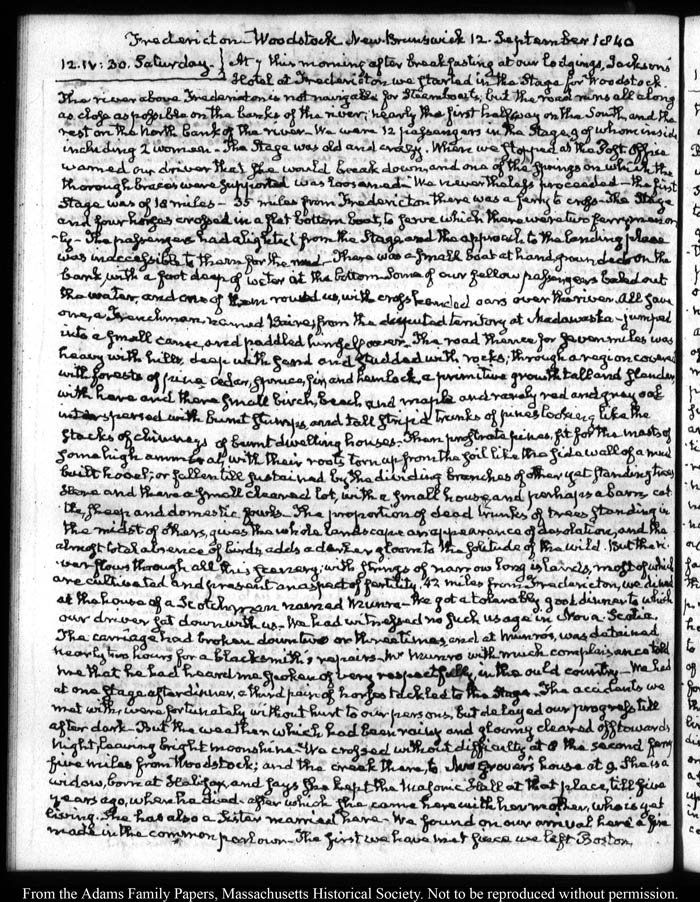 Fredericton - Woodstock New-Brunswick 12. September 1840
12. IV: 30. Saturday. } At 7 this morning after breakfasting at our lodgings, Jacksons
Hotel at Fredericton, we started in the Stage for Woodstock.
The river above Fredericton is not navigable for Steamboats; but the road runs all along
as close as possible on the banks of the river; nearly the first half way on the South, and the
rest on the North bank of the river. We were 12 passengers in the Stage, 9 of whom inside
including 2 women - The Stage was old and crazy. Where we stopped at the Post Office
warned our driver that she would break down, and one of the springs on which the
thorough braces were supported was loosened - We nevertheless proceeded - the first
Stage was of 18 miles - 35 miles from Fredericton there was a ferry to cross - The Stage
and four horses crossed in a flat bottom boat, to serve which there were two ferrymen on
-ly - The passengers had alighted from the Stage and the approach to the landing place
was inaccessible to them for the mud - There was a small boat at hand, grounded on the
bank, with a foot deep of water at the bottom. Some of our fellow passengers baled out
the water, and one of them rowed us, with cross handed oars over the river. All save
one, a Frenchman named Baire, from the disputed territory at Madawaska - jumped
into a small canoe, and paddled himself over. The road thence for seven miles was
heavy with hills, deep with sand and studded with rocks, through a region covered
with forests of pine cedar, spruce, fir, and hemlock, a primitive growth tall and slender,
with here and there small birch, beach, and maple and rarely red and gray oak
interspersed with burnt stumps, and tall strip'd trunks of pines looking like the
stacks of chimneys of burnt dwelling houses. Then prostrate pines, fit for the masts of
some high ammiral, with their roots torn up from the soil like the side wall of a mud
built hovel; or fallen till sustained by the dividing branches of other yet standing trees
Here and there a small cleared lot, with a small house, and perhaps a barn, cat
tle, sheep and domestic fowls. The proportion of dead trunks of trees standing in
the midst of others, gives the whole landscape an appearance of desolation, and the
almost total absence of birds, adds a darker gloom to the solitude of the wild. But the ri-
ver flows through all this scenery, with strings of narrow long islands, most of which
are cultivated and present an aspect of fertility. 42 miles from Fredericton, we dined
at the house of a Scotchman named Munro - We got a tolerably good dinner to which
our driver sat down with us - We had witnessed no such usage in Nova Scotia.
The carriage had broken down two or three times, and at Munro's, was detained
nearly two hours for a blacksmith's repairs - Mr Munro with much complaisance told
me that he had heard me spoken of very respectfully in the ould country - We had
at one Stage after dinner, a third pair of horses tackled to the Stage. The accidents we
met with, were fortunately without hurt to our persons, but delayed our progress till
after dark - But the weather which had been rainy and gloomy cleared off towards
Night, leaving bright moonshine - We crossed without difficulty at 8 the second ferry
five miles from Woodstock; and the creek there, to Mrs Grover's house at 9. She is a
widow, born at Halifax, and says she kept the Masonic Hall at that place, till five
years ago, when he died - after which she came here with her mother, who is yet
living. She has also a Sister married here - We found on our arrival here a fire
made in the common parlour - The first we have met since we left Boston,
From the Adams Family Papers, Massachusetts Historical Society. Not to be reproduced without permission.